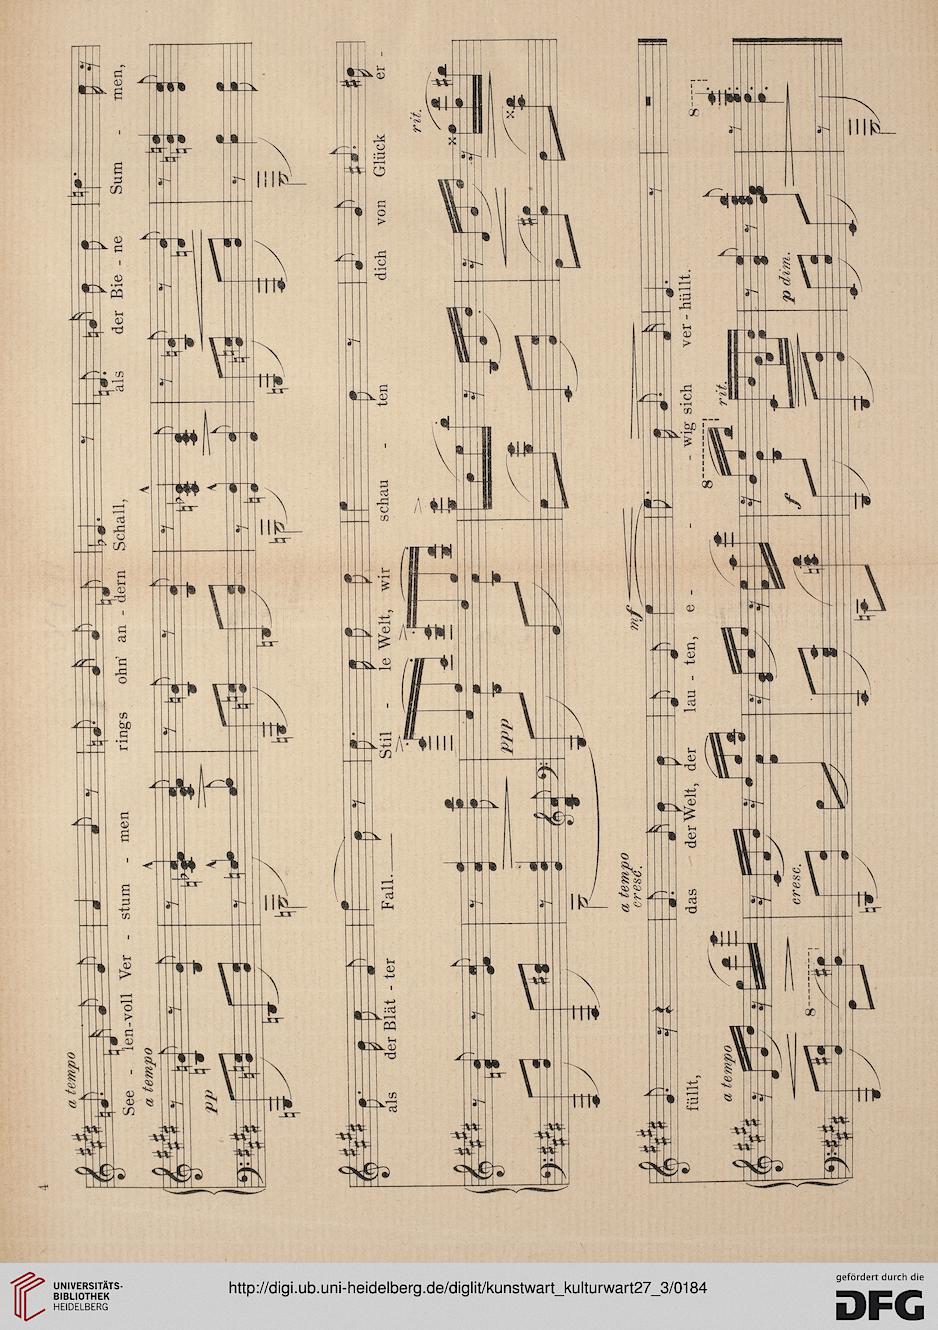 4
a tempo
See - len-voll Ver - stum - men rings ohn' an - dern Schall, als der Bie - ne Sum - men,
a tempo
pp
als der Blät - ter Fall. Stil - le Welt, wir schau - ten dich von Glück er -
rit.
ppp
a tempo
cresc.
mf
füllt, das der Welt, der lau - ten, e - - - wig sich ver - hüllt.
a tempo
8
cresc.
8
f
rit.
p dim.
8
UNIVERSITÄTS-
BIBLIOTHEK
HEIDELBERG
http://digi.ub.uni-heidelberg.de/diglit/kunstwart_kulturwart27_3/0184
gefördert durch die
DFG